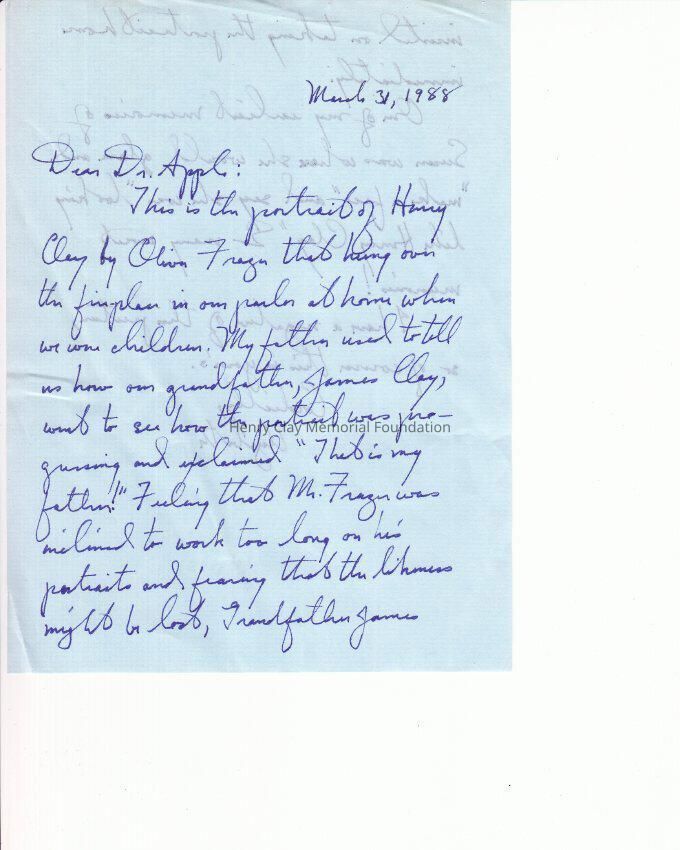 March 31, 1988
Dear Dr. Apple:
"This is the portrait of Henry
Clay by Oliver Frazer that hung over
the fireplace in our parlor at home when
we were children. My father used to tell
us how our grandfather, James Clay,
went to see how the portrait was pro-
gressing and exclaimed "That is my
father!" Feeling that Mr. Frazer was
inclined to work too long on his
portraits and fearing that the likeness
might be lost, Grandfather James
Henry Clay Memorial Foundation